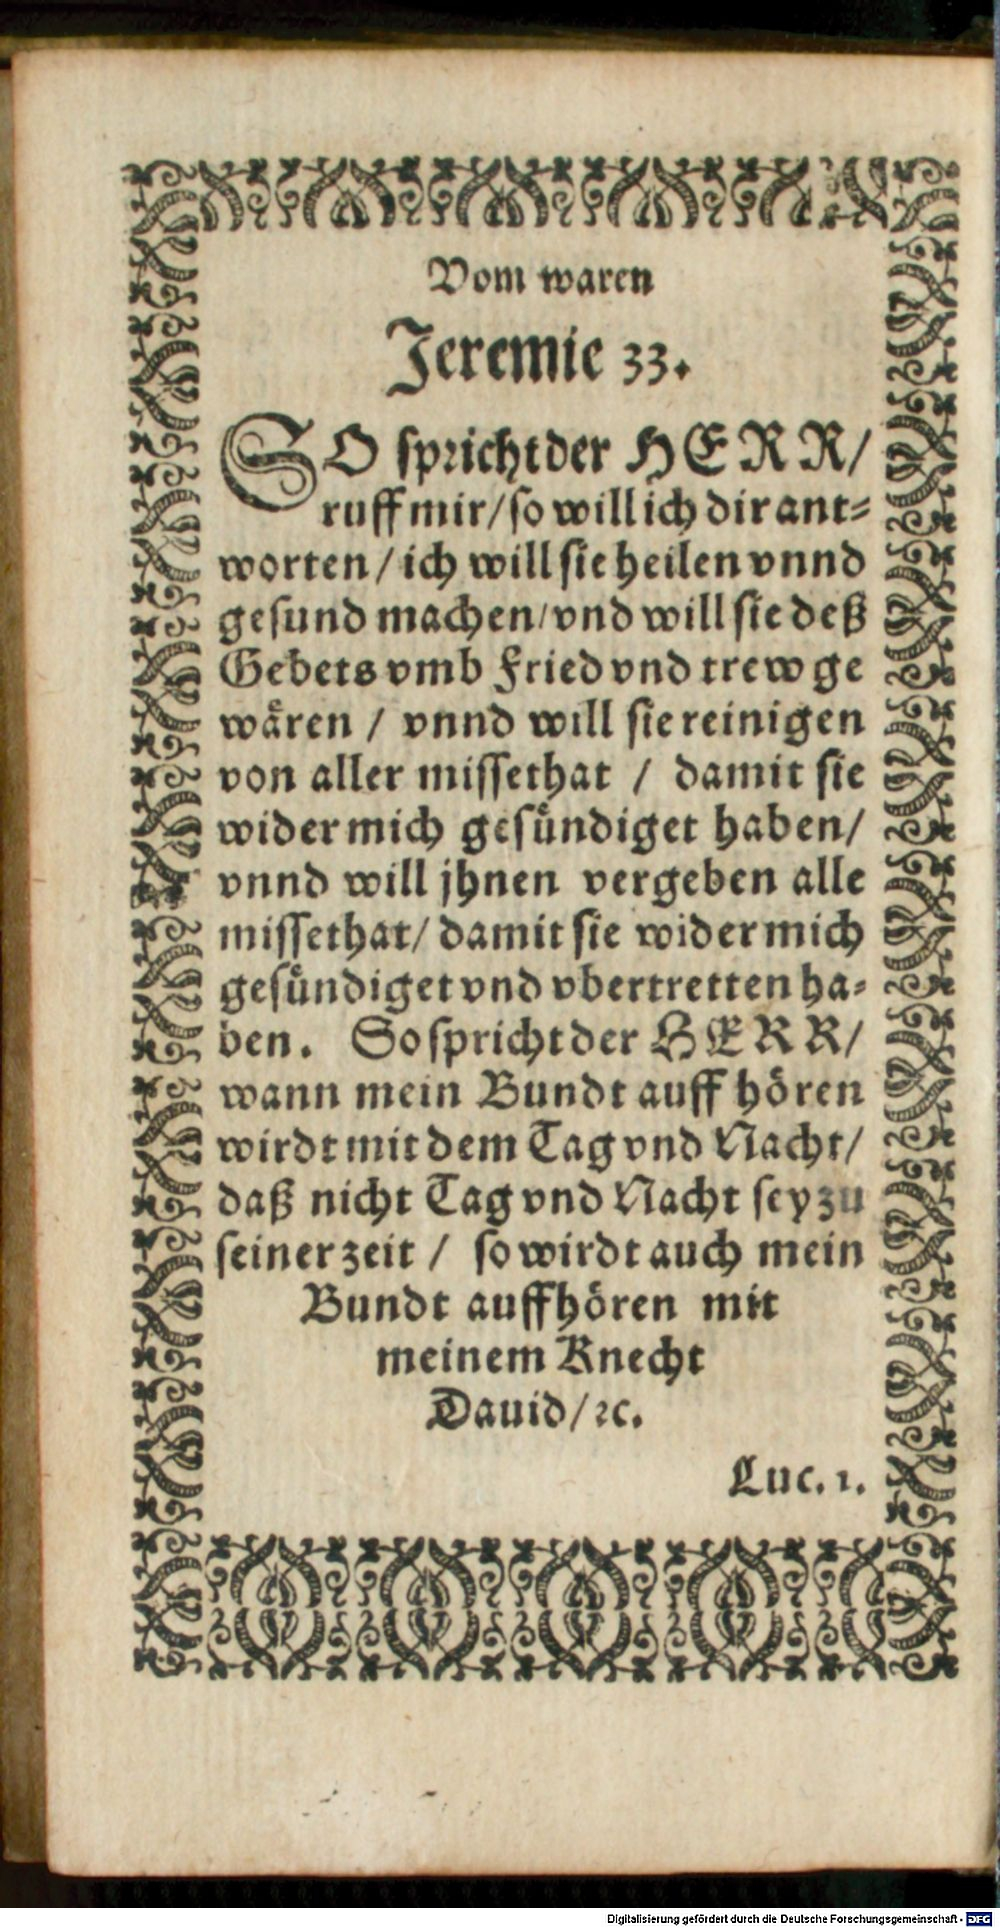 Vom waren
Jeremie 33.
SO spricht der HERR/
ruff mir/ so will ich dir ant-
worten / ich will sie heilen vnnd
gesund machen/ vnd will sie deß
Gebets vmb Fried vnd trew ge
wären / vnnd will sie reinigen
von aller missethat / damit sie
wider mich gesündiget haben/
vnnd will jhnen vergeben alle
missethat/ damit sie wider mich
gesündiget vnd vbertretten ha-
ben. So spricht der HERR/
wann mein Bundt auff hören
wirdt mit dem Tag vnd Nacht/
daß nicht Tag vnd Nacht sey zu
seiner zeit / so wirdt auch mein
Bundt auffhören mit
meinem Knecht
Dauid/ ꝛc.
Luc. 1.
Digitalisierung gefördert durch die Deutsche Forschungsgemeinschaft - DFG